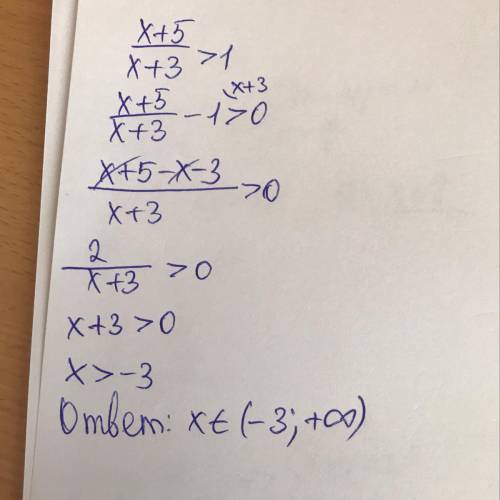 x+5/x+3 > 1
x+5/x+3 - 1\x+3 > 0
x+5-x-3/x+3 > 0
2/x+3 > 0
x+3 > 0
x > -3
Ответ: x ∈ (-3; +∞)